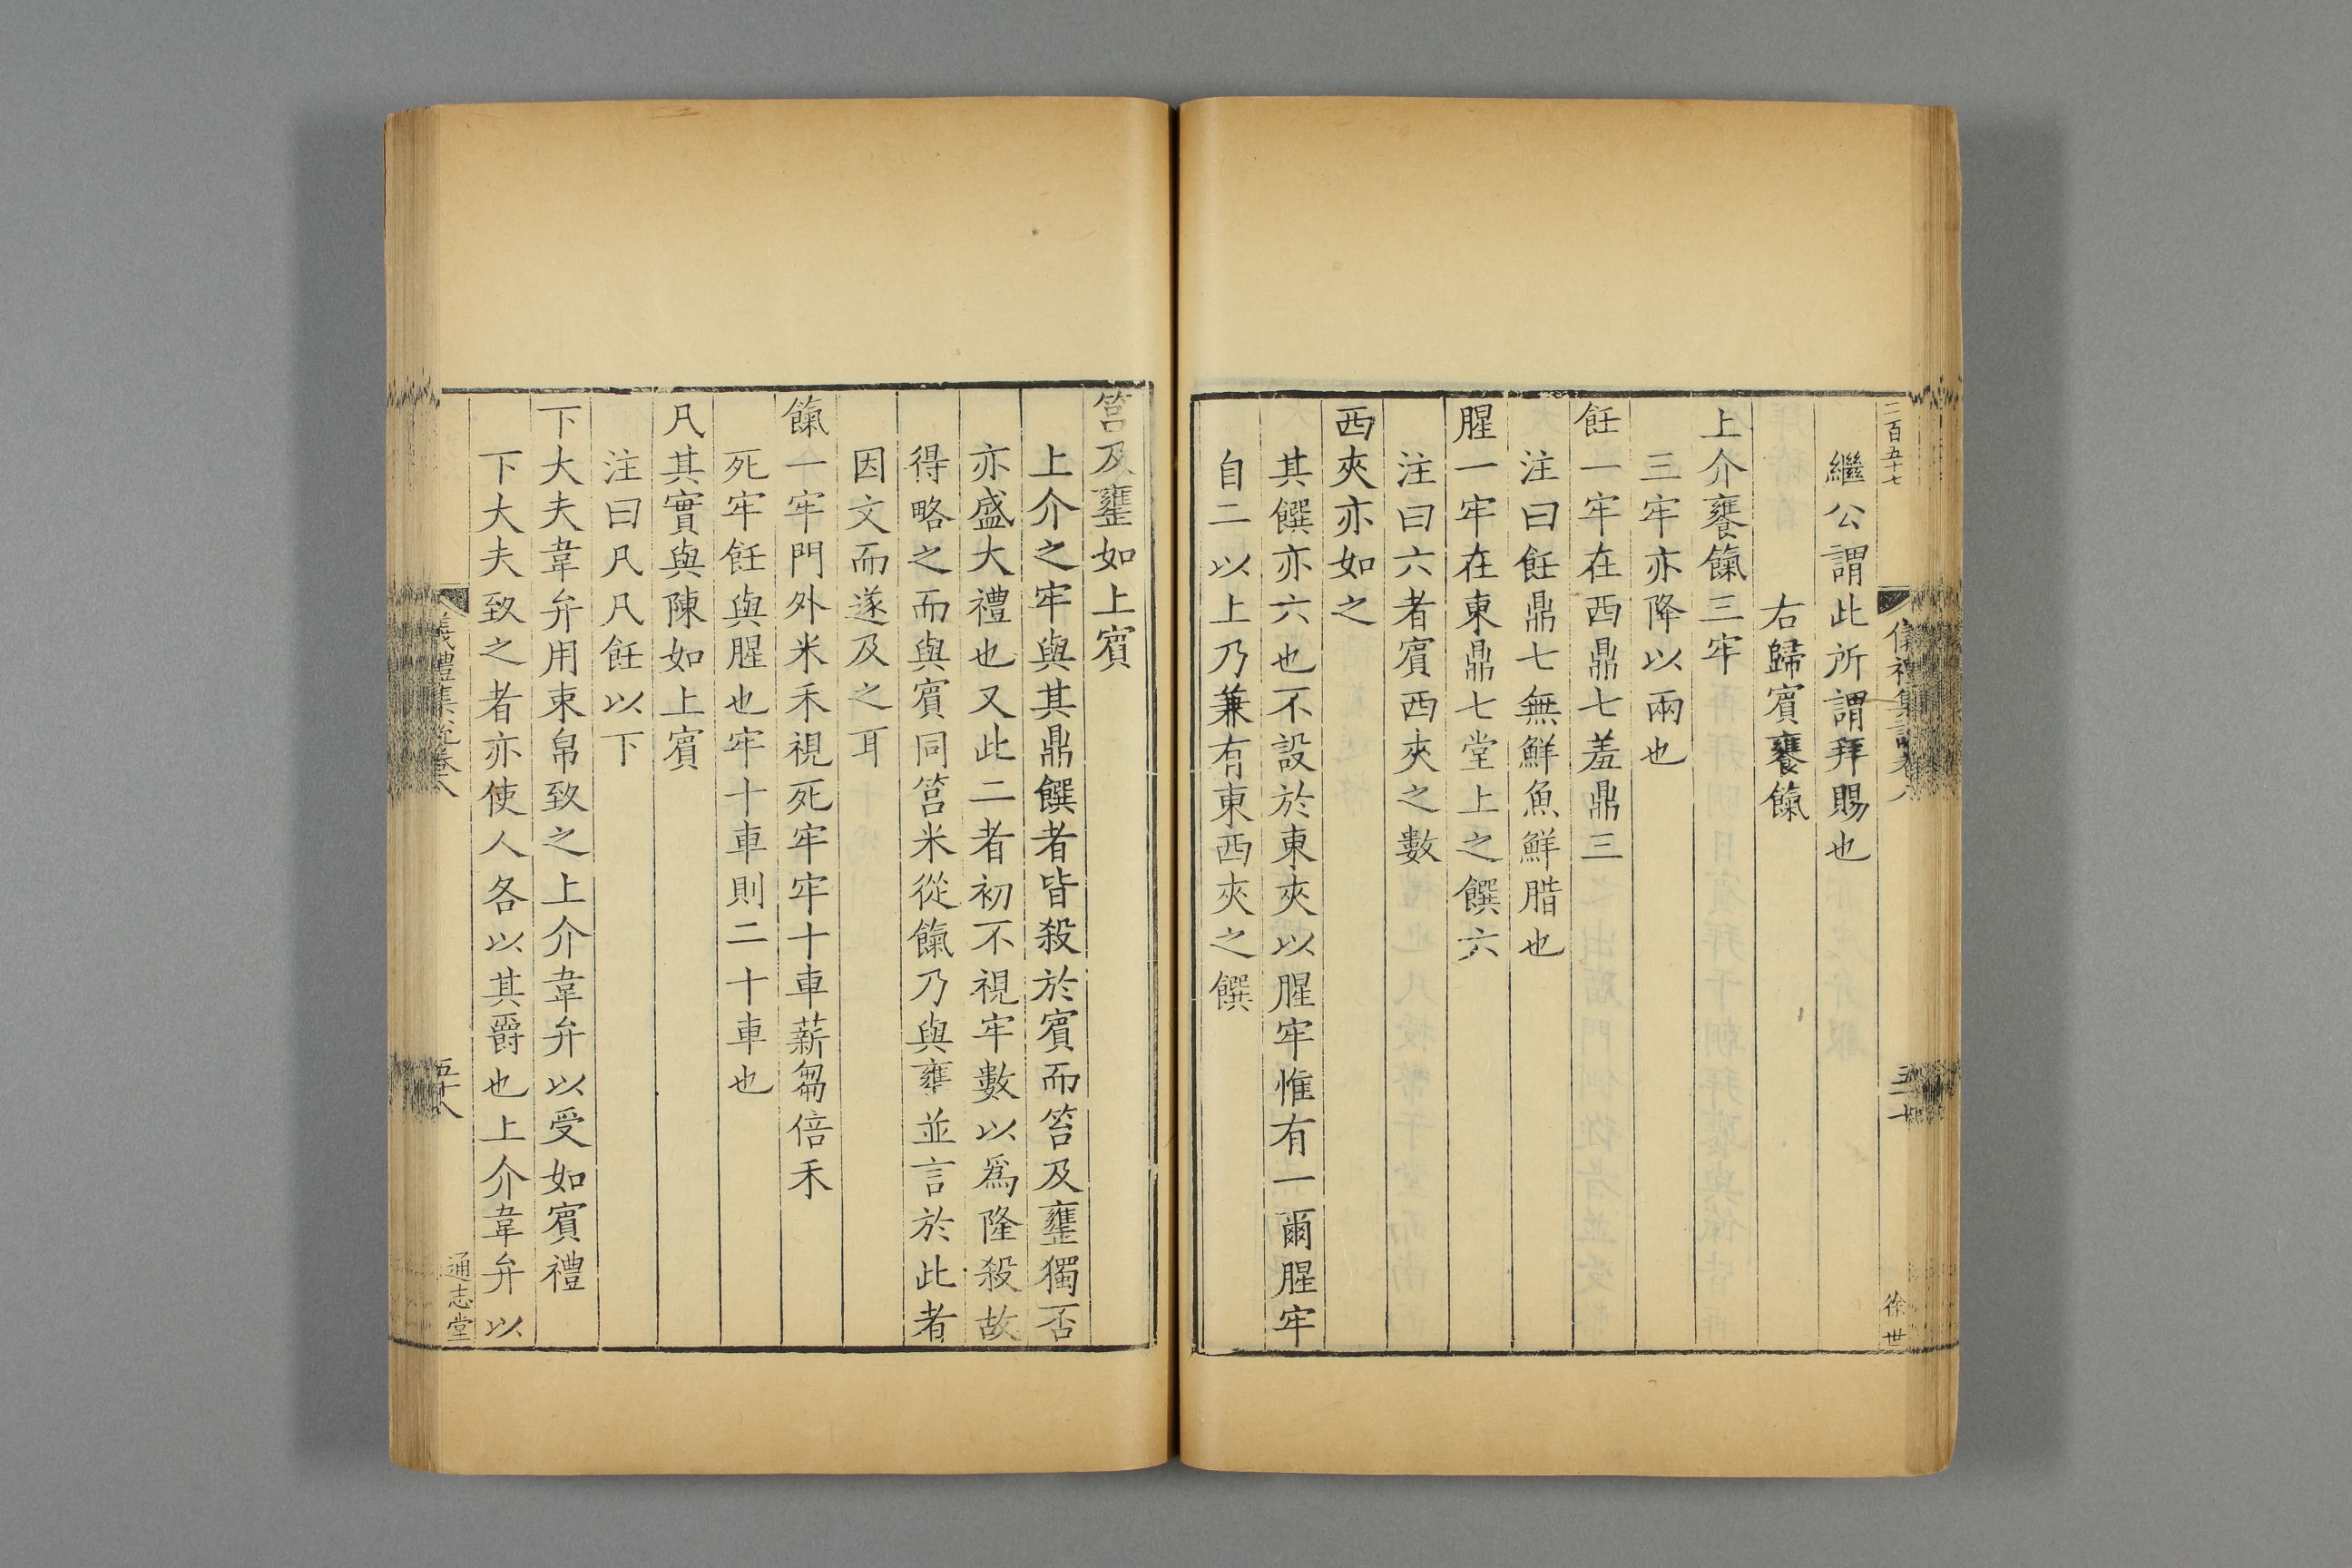 二百五十七
儀禮集說卷八
徐世
繼公謂此所謂拜賜也
右歸賓饔餼
上介饔餼三牢
三牢亦降以兩也
飪一牢在西鼎七羞鼎三
注曰飪鼎七無鮮魚鮮腊也
腥一牢在東鼎七堂上之饌六
注曰六者賓西夾之數
西夾亦如之
其饌亦六也不設於東夾以腥牢惟有一爾腥牢
自二以上乃兼有東西夾之饌
筥及罋如上賓
上介之牢與其鼎饌者皆殺於賓而筥及罋獨否
亦盛大禮也又此二者初不視牢數以爲隆殺故
得略之而與賓同筥米從餼乃與罋並言於此者
因文而遂及之耳
餼一牢門外米禾視死牢牢十車薪芻倍禾
死牢飪與腥也牢十車則二十車也
凡其實與陳如上賓
注曰凡凡飪以下
下大夫韋弁用束帛致之上介韋弁以受如賓禮
下大夫致之者亦使人各以其爵也上介韋弁以
儀禮集說卷八
五十八
通志堂